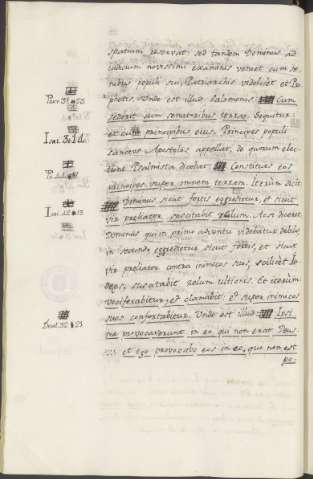 spatium reservat sed tandem Dominus ad
judicium novissimi examinis veniet cum se-
nibus populi sui, Patriarchis videlicet et Pro-
phetis, unde est illud Salomonis Cum
sederit cum senatoribus terrae. Sequitur:
et cum principibus ejus. Principes populi
sanctos Apostolos appellat, de quorum elec-
tione Psalmista dicebat Constitues eos
principes super omnem terram. Iterum dicit
Dominus sicut fortis egredietur, et sicut
vir praeliator suscitabit zelum. Ac si diceret
Dominus qui in primo adventu videbatur debilis
in secundo egredietur sicut fortis, et sicut
vir praeliator contra inimicos suos, scilicet Ju-
daeos, suscitabit zelum ultionis. Et iterum
vociferabitur, et clamabit et super inimicos
suos confortabitur. Unde est illud Ipsi
me provocaverunt in eo, qui non erat Deus
et ego provocabo eos in eo, qui non est
po-
Isai. 42
Deut. 32 21